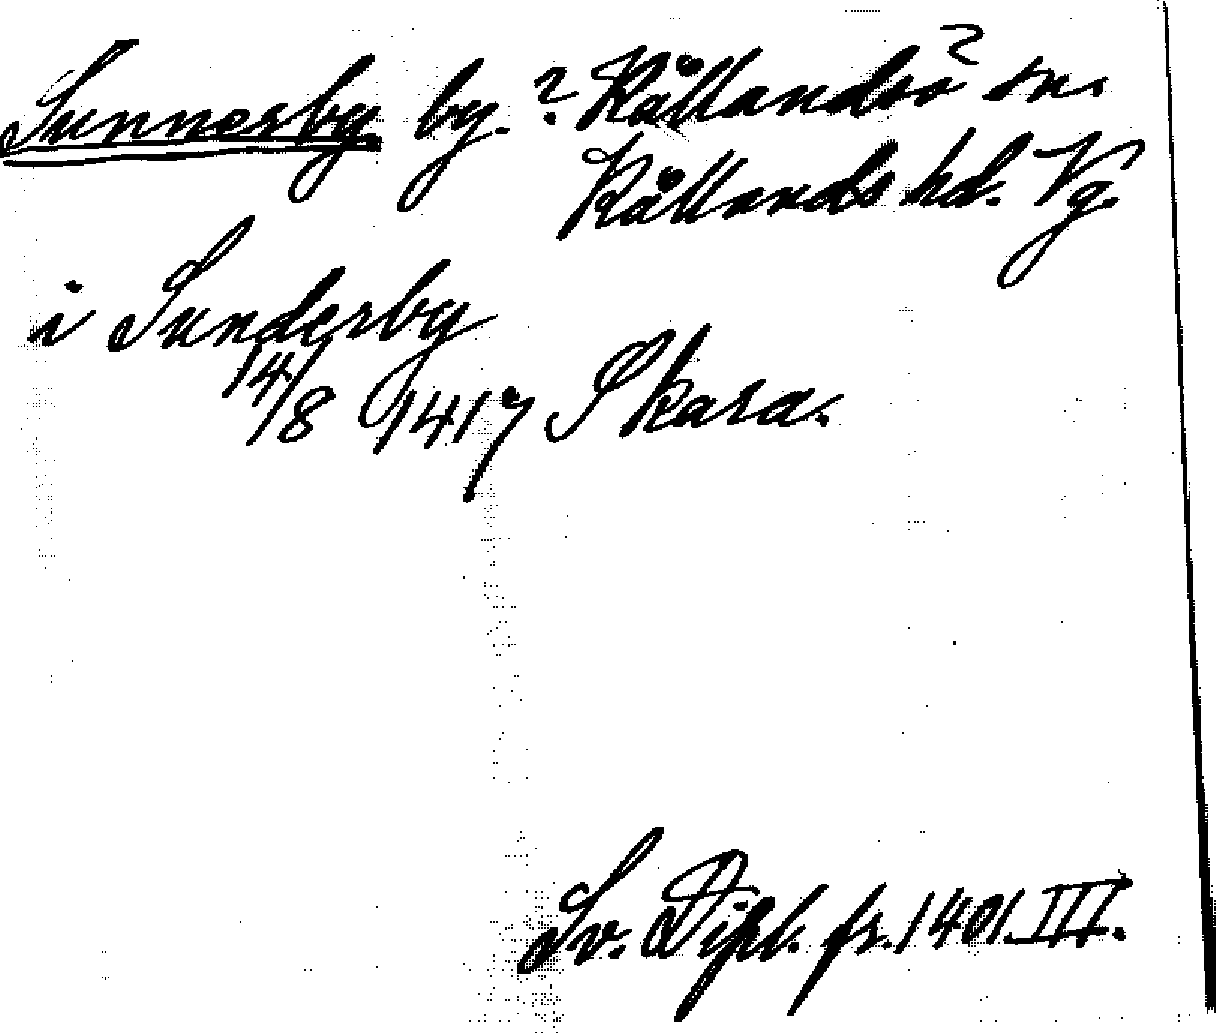 Sunnersby by. ? Kållandsö ? sn.
Kållands hd. Vg.
i Sunderby
14/8 1417 Skara.
Sv. Dipl. fr. 1401. III.